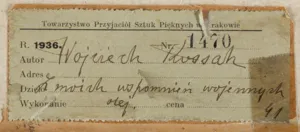 Towarzystwo Przyjaciół Sztuk Pięknych w Krakowie
R. 1936. Nr. 1470
Autor Wojciech Kossak
Adres
Dzieło Z moich wspomnień wojennych
Wykonanie olej. cena 41